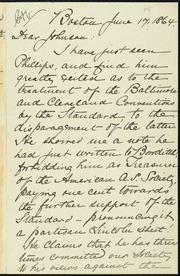 Boston June 17, 1864
Dear Johnson:
I have just seen
Phillips, and find him
greatly excited as to the
treatment of the Baltimore
and Cleveland Conventions
by the Standard, to the
disparagement of the latter.
He showed me a note he
had just written
forbidding him as Treasurer
of the American A. S. Society,
paying one cent towards
the further support of the
Standard — pronouncing it
a partisan Lincoln sheet.
He claims that he has three
times committed our Society
to his views against the